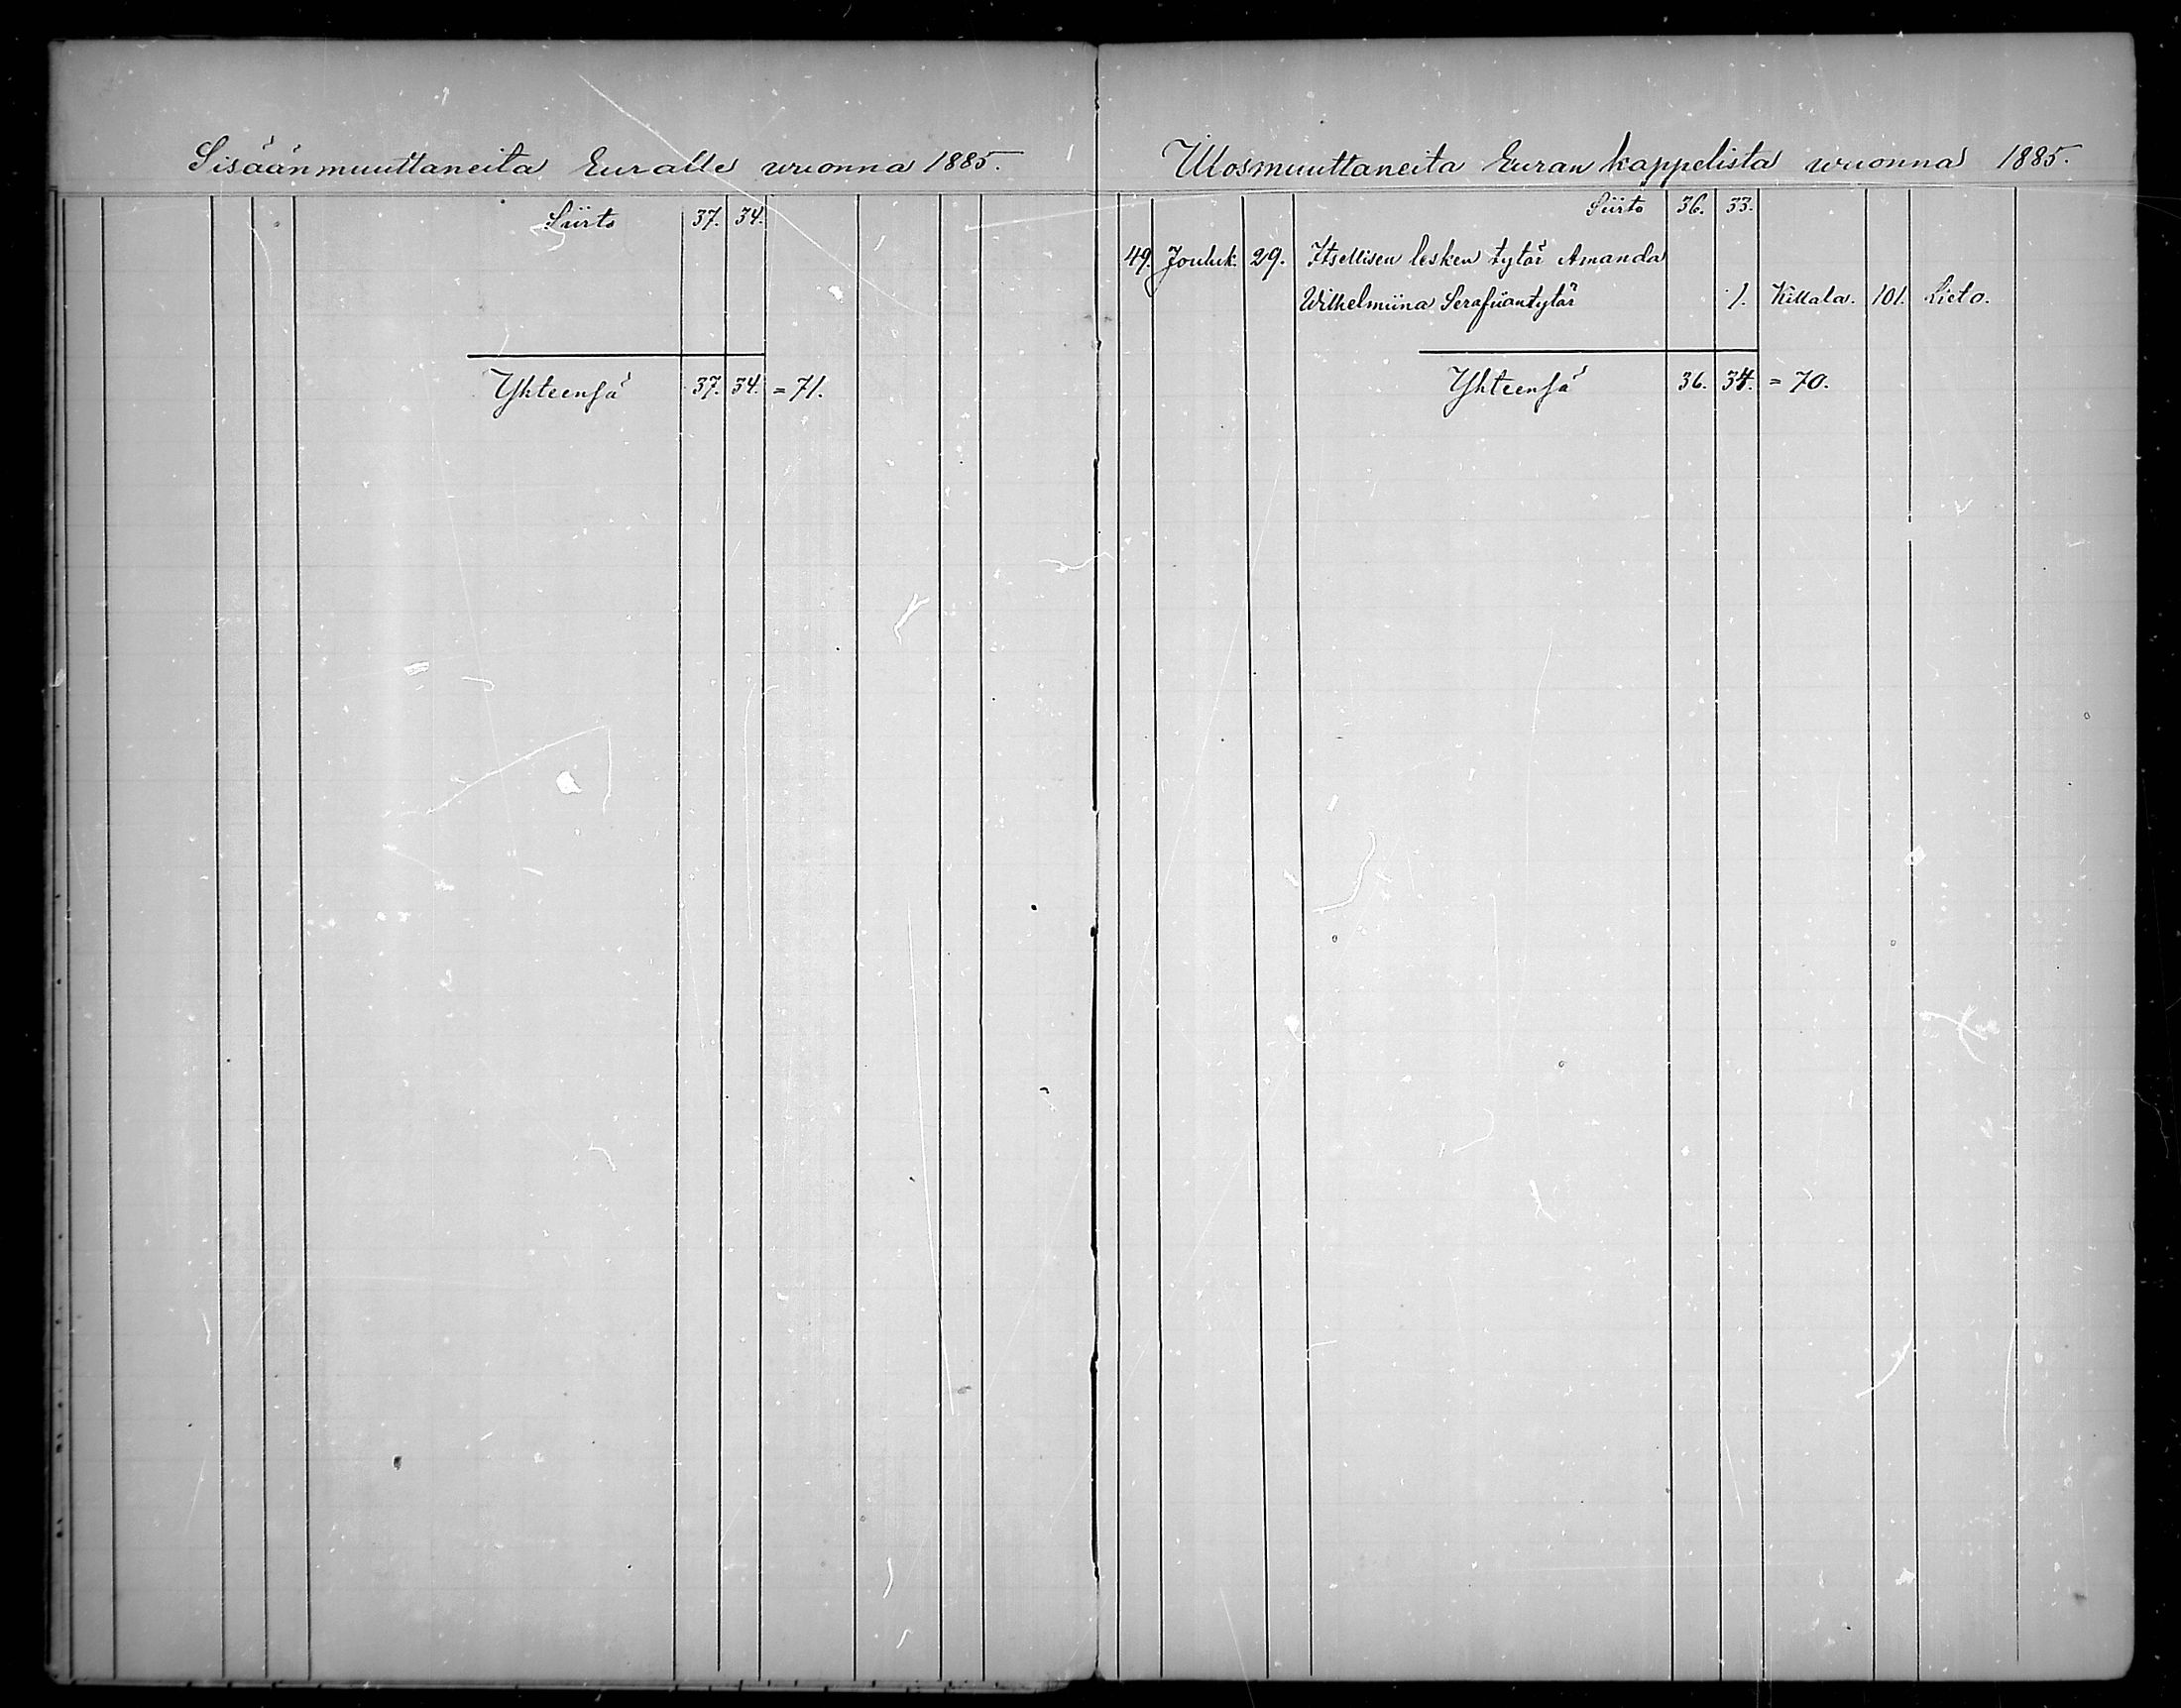 Sisäänmuuttaneita Euralle wuonna 1885.
Siirto 37. 34.
Yhteensä 37. 34. = 71.
Ulosmuuttaneita Euran kappelista wuonna 1885.
Siirto 36. 33.
49. Jouluk. 29. Itsellisen lesken tytär Amanda
Wilhelmiina Serafiantytär 1. Killala. 101. Lieto.
Yhteensä 36. 34. = 70.